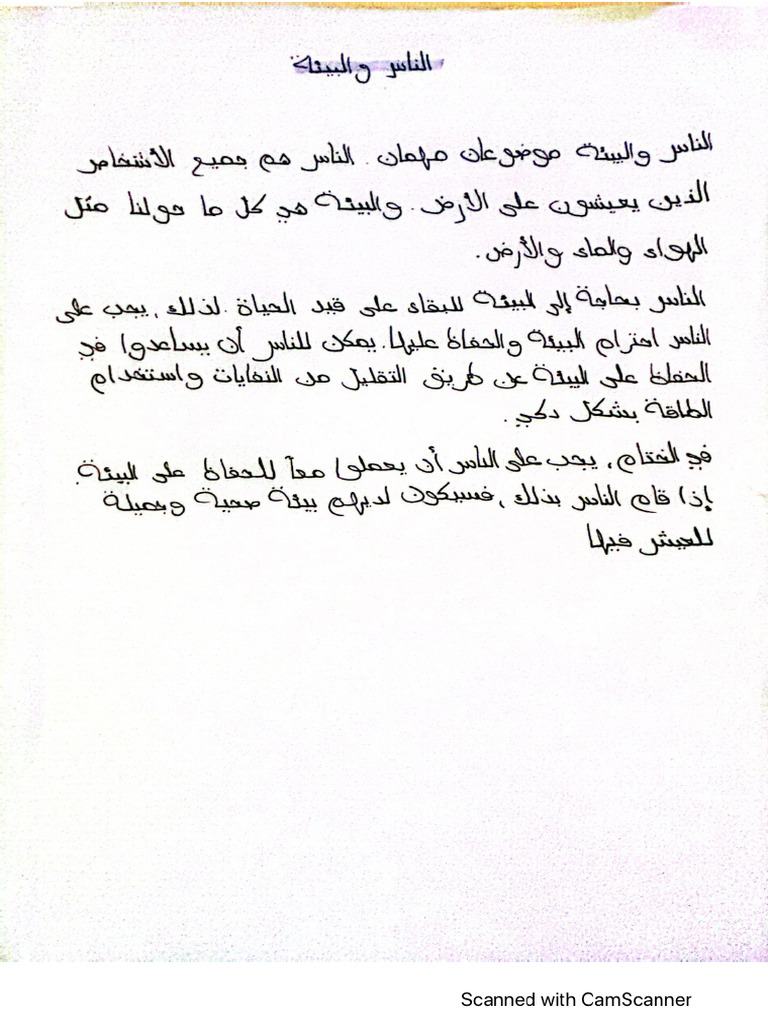 الناس والبيئة
الناس والبيئة موضوعان مهمان. الناس هم جميع الأشخاص
الذين يعيشون على الأرض. والبيئة هي كل ما حولنا مثل
الهواء والماء والأرض.
الناس بحاجة إلى البيئة للبقاء على قيد الحياة. لذلك، يجب على
الناس احترام البيئة والحفاظ عليها. يمكن للناس أن يساعدوا في
الحفاظ على البيئة عن طريق التقليل من النفايات واستخدام
الطاقة بشكل دكي.
في الختام، يجب على الناس أن يعملوا معاً للحفاظ على البيئة.
إذا قام الناس بذلك، فسيكون لديهم بيئة صحية وجميلة
للعيش فيها
Scanned with CamScanner